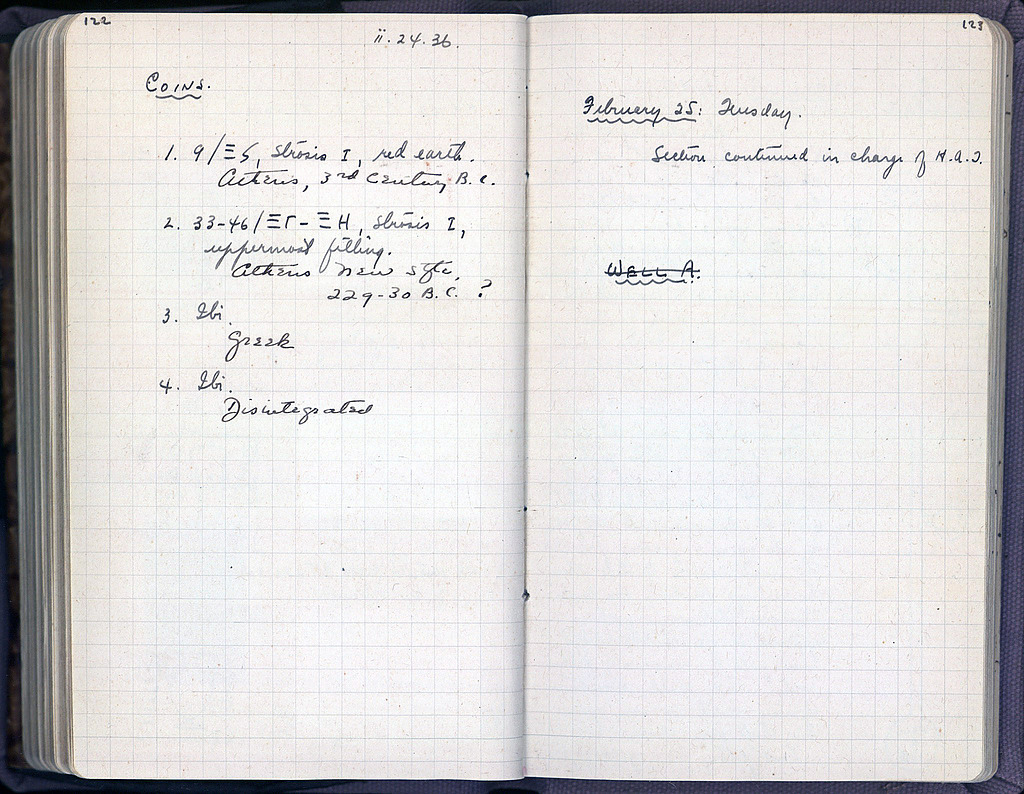 122
ii.24.36.
Coins.
1. 9/ΞS, Strosis I, red earth.
Athens, 3rd Century B.C.
2. 33-46/ΞΓ-ΞH, Strosis I,
uppermost filling.
Athens New Style,
229-30 B.C. ?
3. Ibi.
Greek
4. Ibi.
Disintegrated
123
February 25: Tuesday.
Section continued in charge of H.A.T.
WELL A.